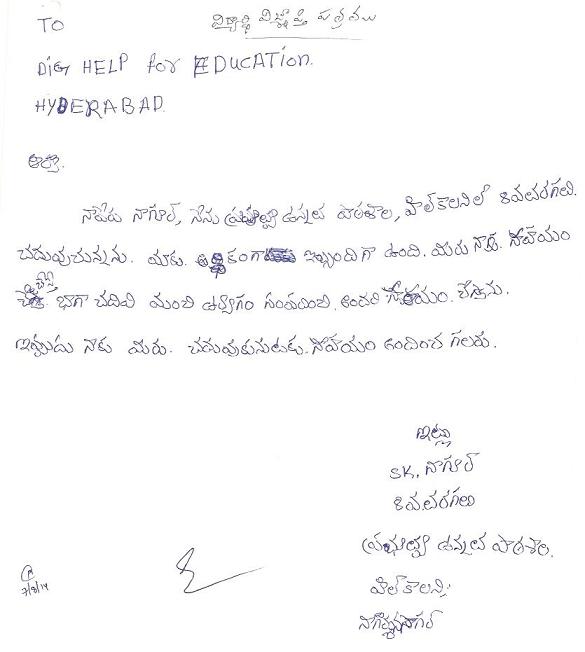 విద్యార్థి విజ్ఞప్తి పత్రము
TO
DiG HELP for EDUCATION.
HYDERABAD.
ఆర్యా.
నాపేరు నాగూర్, నేను ప్రభుత్వ ఉన్నత పాఠశాల, హిల్ కాలనిలో 8వ తరగతి.
చదువుచున్నను. మాకు. ఆర్థికంగా ఇబ్బందిగా ఉంది. మీరు నాకు. సాహయం
చేస్తే భాగా చదివి మంచి ఉద్యోగం సంపాయించి. అందరి సాహయం. చేస్తాను.
ఇప్పుడు నాకు మీరు. చదువుకునుటకు. సాహయం అందించ గలరు.
ఇట్లు
SK. నాగూర్
8వ తరగతి
ప్రభుత్వ ఉన్నత పాఠశాల.
హిల్ కాలని;
నాగార్జునసాగర్
7/8/14